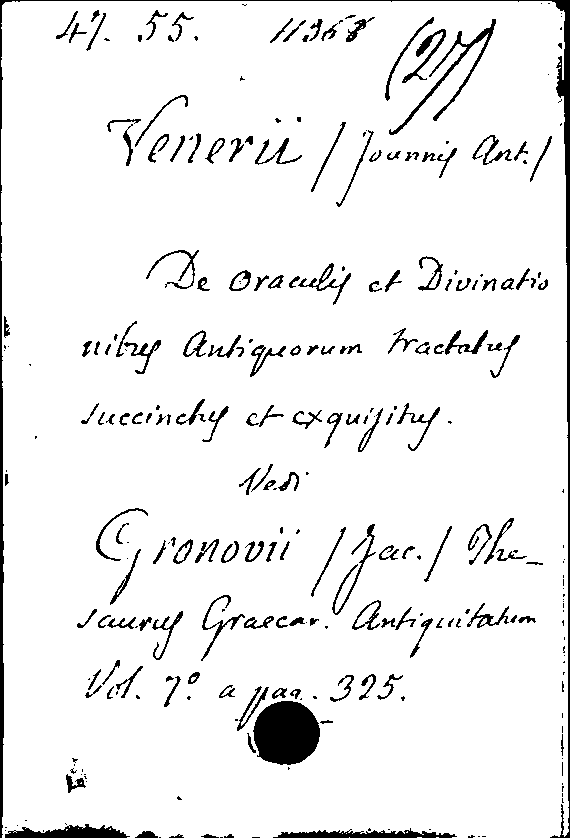 47. 55. 11368 (27)
Venerii /Joannis Ant./
De Oraculis et Divinatio
nibus Antiquorum tractatus
succinctus et exquisitus.
Vedi
Gronovii /Jac./ The-
saurus Graecar. Antiquitatum
Vol. 7º a pag. 325.